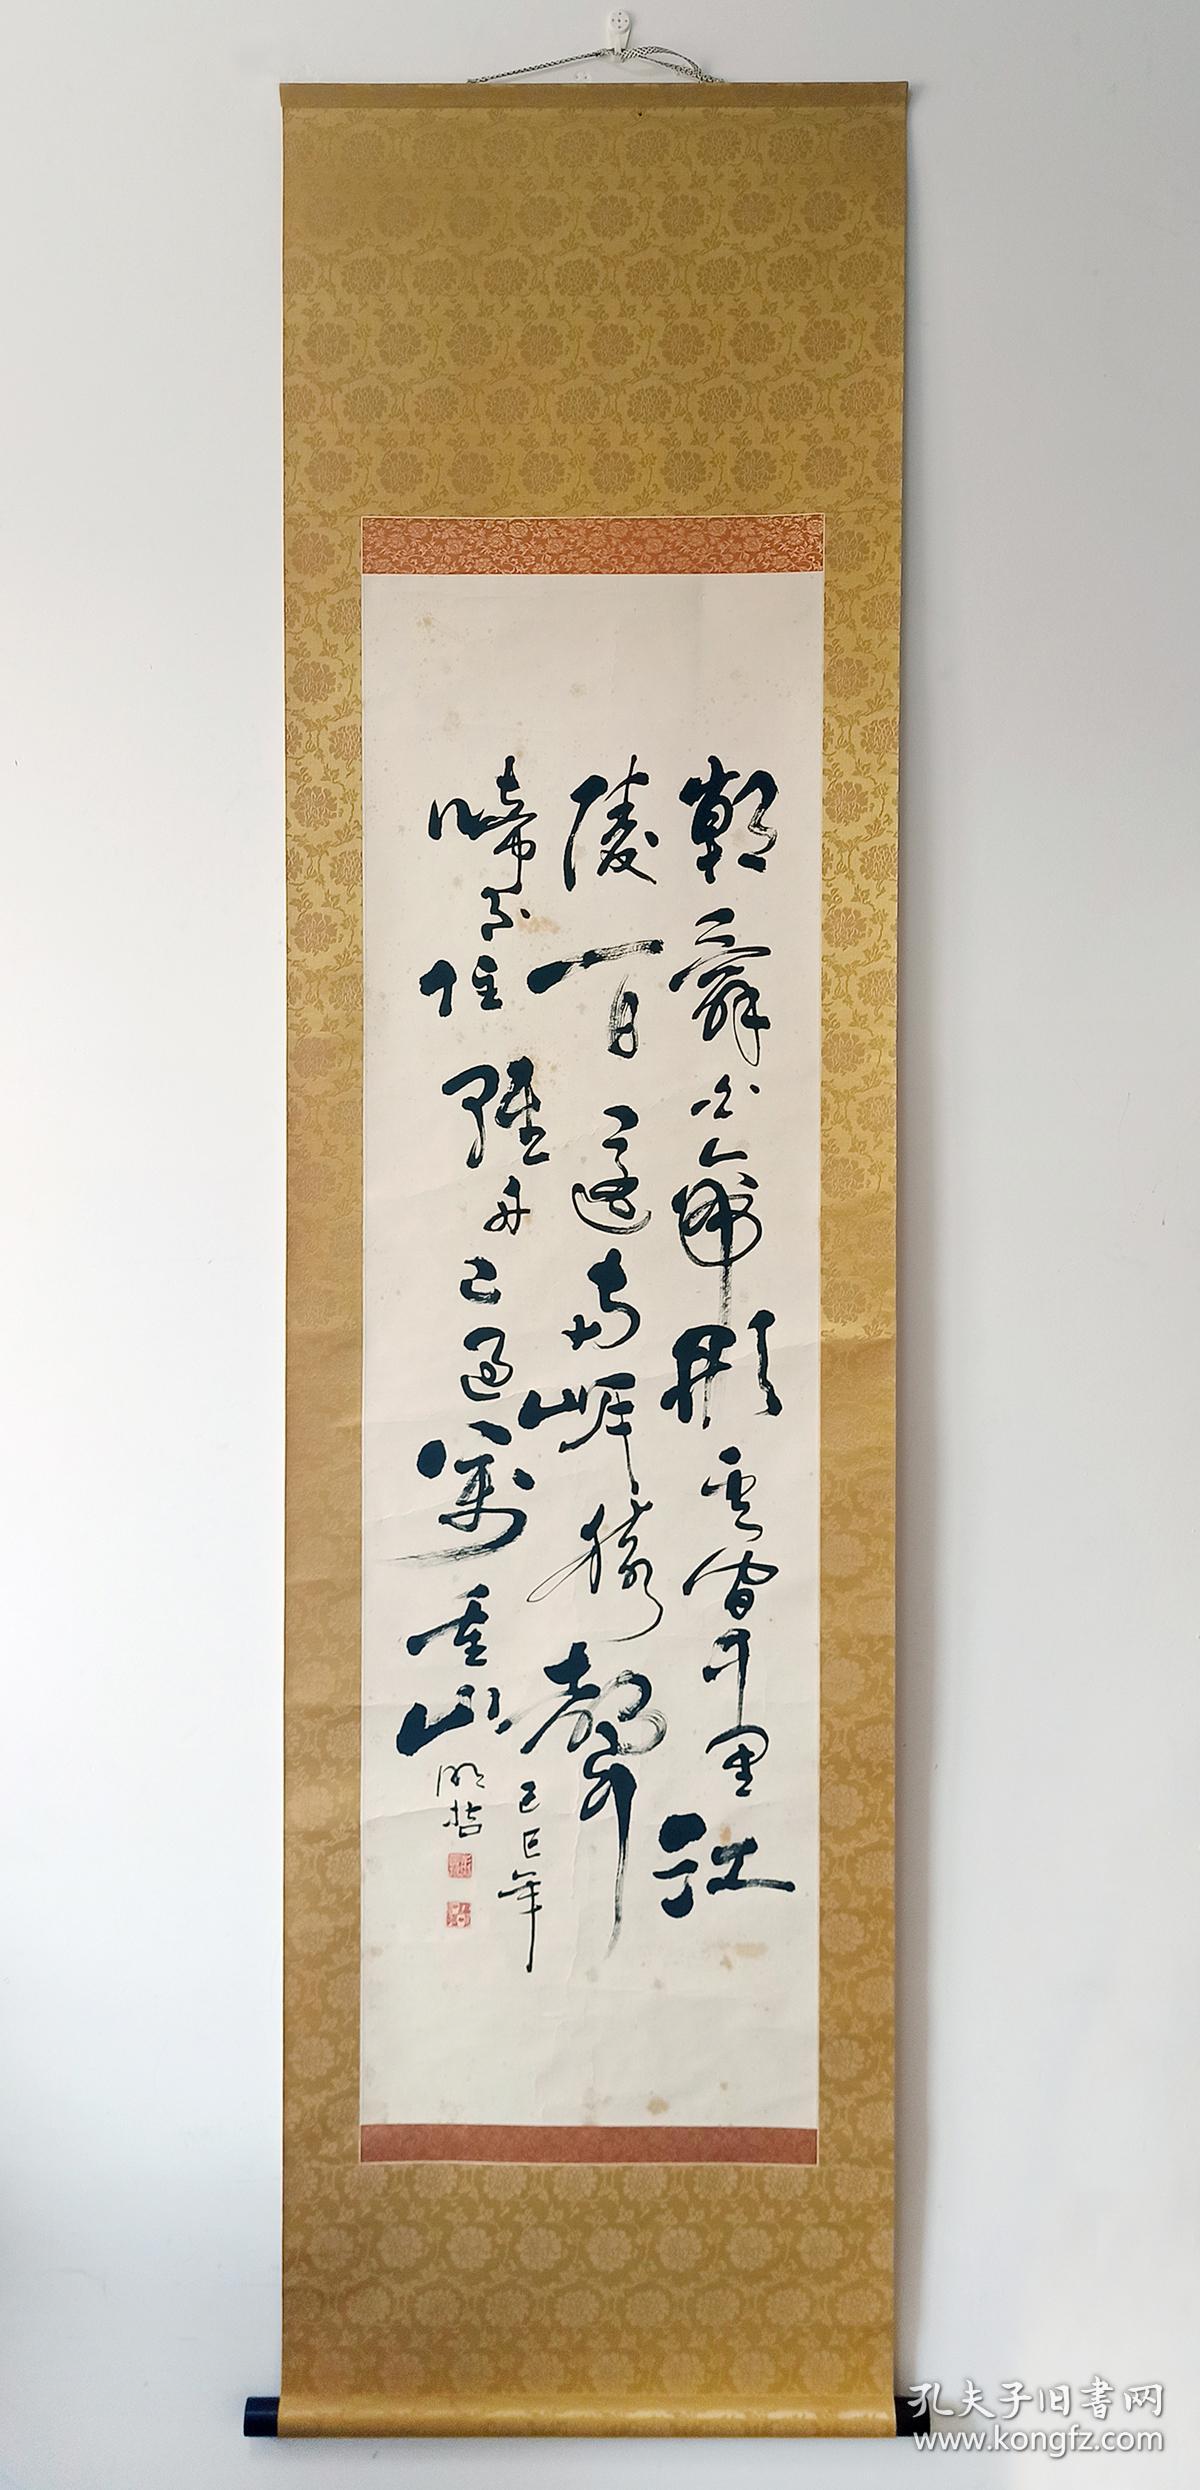 朝辭白帝彩雲間千里江
陵一日還兩岸猿聲
啼不住輕舟已過萬重山
己巳年
明哲
孔夫子旧書网
www.kongfz.com